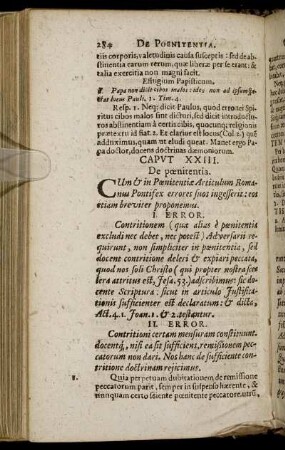 284 DE POENITENTIA.
tiis corporis, valetudinis causa suscepta: sed de abstinentia
earum rerum, quæ liberæ per se erant: &
talia exercitia non magni facit.
Effugium Papisticum.
Papa non dicit cibos malos: ideo non ad ipsum
Pauli, 1. Tim. 4.
Resp. 1. Neg: dicit Paulus, quod erronei Spiritus
cibos malos sint dicturi, sed dicit introducturos
abstinentiam à certis cibis, quocunq; religionis
prætextu id fiat. 2. Et clarior est locus (Col. 2.) quē
adduximus, quam ut eludi queat. Manet ergo Papa
doctor, docens doctrinas dæmoniorum.
CAPVT XXIII.
De pœnitentia.
CUm & in Pœnitentiæ Articulum Romanus
Pontifex errores suos ingesserit: eos
etiam breviter proponemus.
I. ERROR.
Contritionem (quæ alias è pœnitentia
excludi nec debet, nec potest) Adversarii requirunt,
non simpliciter in pœnitentia, sed
docent contritione deleri & expiari peccata,
quod nos soli Christo (qui propter nostra scelera
attritus est, Jesa. 53.) adscribimus: docente
Scriptura: sicut in articulo Justificationis
sufficienter est declaratum: & dicta,
Act. 4. 1. Joan. 1. & 2. testantur.
II. ERROR.
Contritioni certam mensuram constituunt,
docentq́, nisi ea sit sufficiens, remissionem peccatorum
non dari. Nos hanc de sufficiente contritione
doctrinam rejicimus.
1. Quia perpetuam dubitationem, de remissione
peccatorum parit, semper in suspenso hærente, &
nunquam certo sciente pœnitente peccatore,